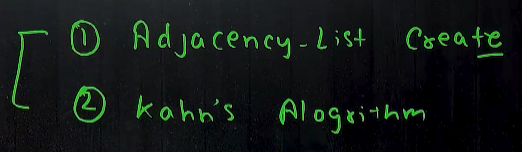 ① Adjacency-List Create
② Kahn's Alogrithm